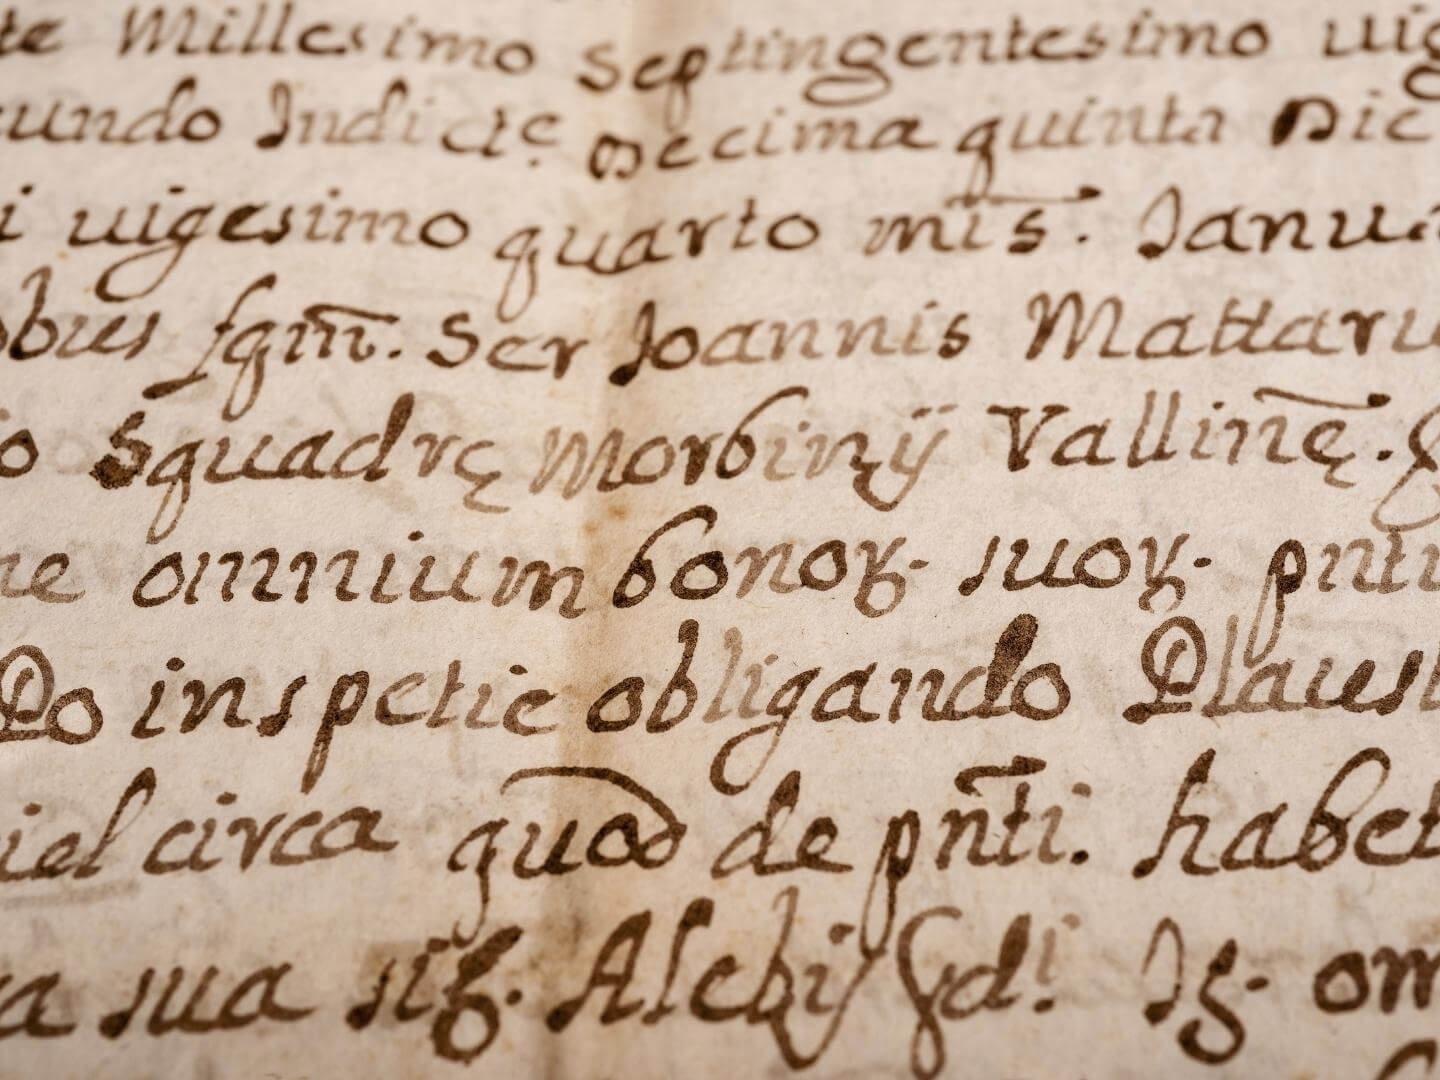 te Millesimo Septingentesimo uig
cundo Indictẹ Decima quinta Die
i uigesimo quarto mis̄. Janua
obus Ser Joannis Mattaru
io Squadrę Morbinij Vallinę̄.
ne omnium bonoꝝ. suoꝝ. pnti
Do inspetie obligando Plaust
iel circa quod de pn̄ti. habet
ra sua Alebij om